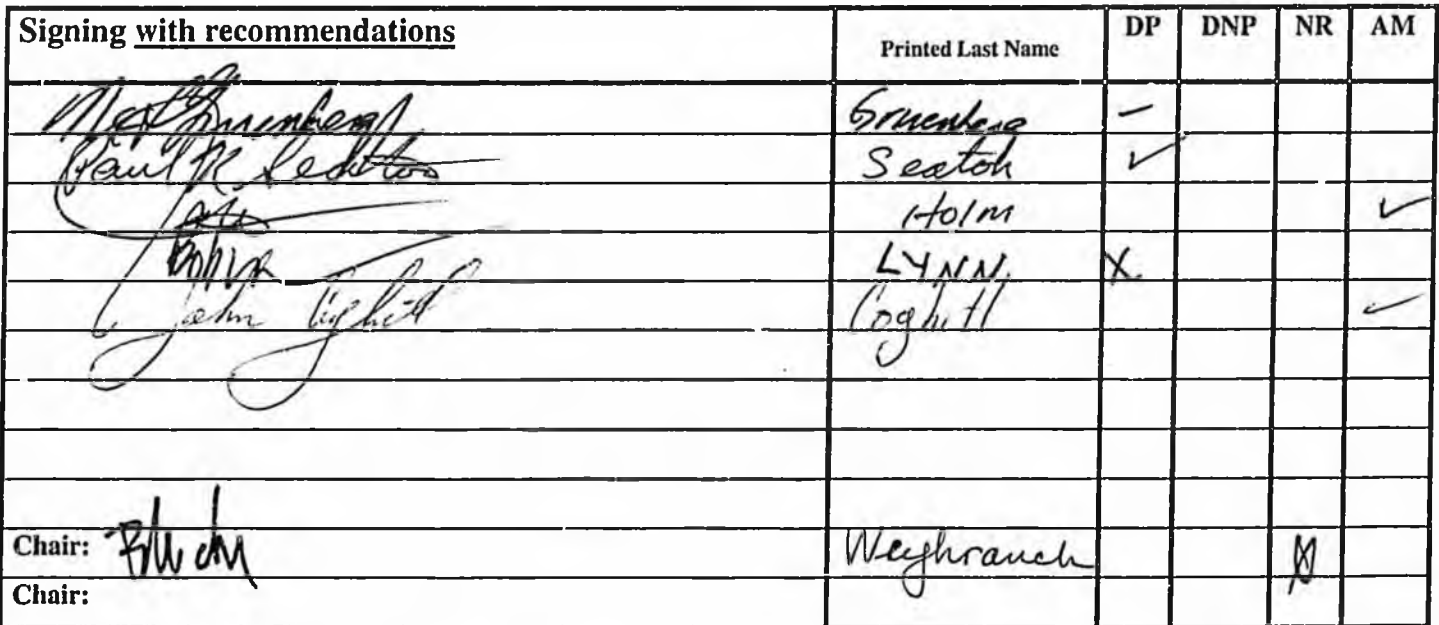 Signing with recommendations Printed Last Name DP DNP NR AM
Gruenberg –
Paul K Seaton Seaton ✓
Holm ✓
LYNN. X
John Coghill Coghill ✓
Chair: Weyhrauch X
Chair: